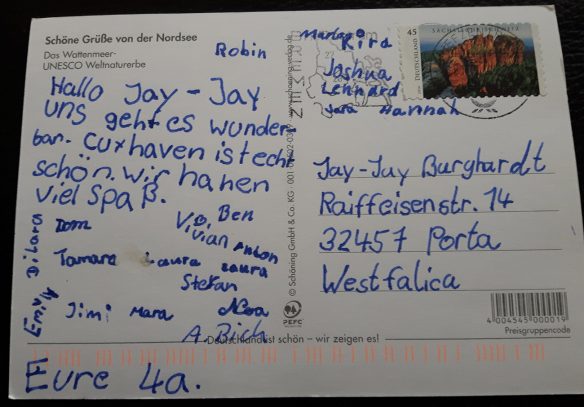 Schöne Grüße von der Nordsee
Das Wattenmeer-
UNESCO Weltnaturerbe
Robin
Hallo Jay-Jay
uns geht es wunder-
bar. Cuxhaven ist echt
schön. wir haben
viel Spaß.
Dilara
Dom
Ben
Vivian Anton
Tamara Laura Laura
Stefan
Emily
Jimi Mara Noa
A. Bich
Eure 4a.
Deutschland ist schön – wir zeigen es!
© Schöning GmbH & Co. KG
PEFC
Kira
Joshua
Lennard
Sara Hannah
45
DEUTSCHLAND
Jay-Jay Burghardt
Raiffeisenstr. 14
32457 Porta
Westfalica
4 004545 000019
Preisgruppencode